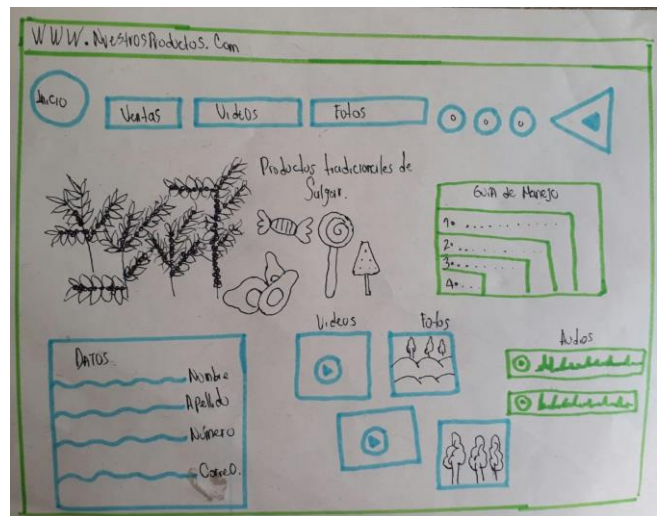 WWW.NuestrosProductos.Com
Inicio
Ventas
Videos
Fotos
Productos tradicionales de
Salgar.
Guia de Manejo
1.
2.
3.
4.
Videos
Fotos
Audos
DATOS
Nombre
Apellido
Número
Correo.